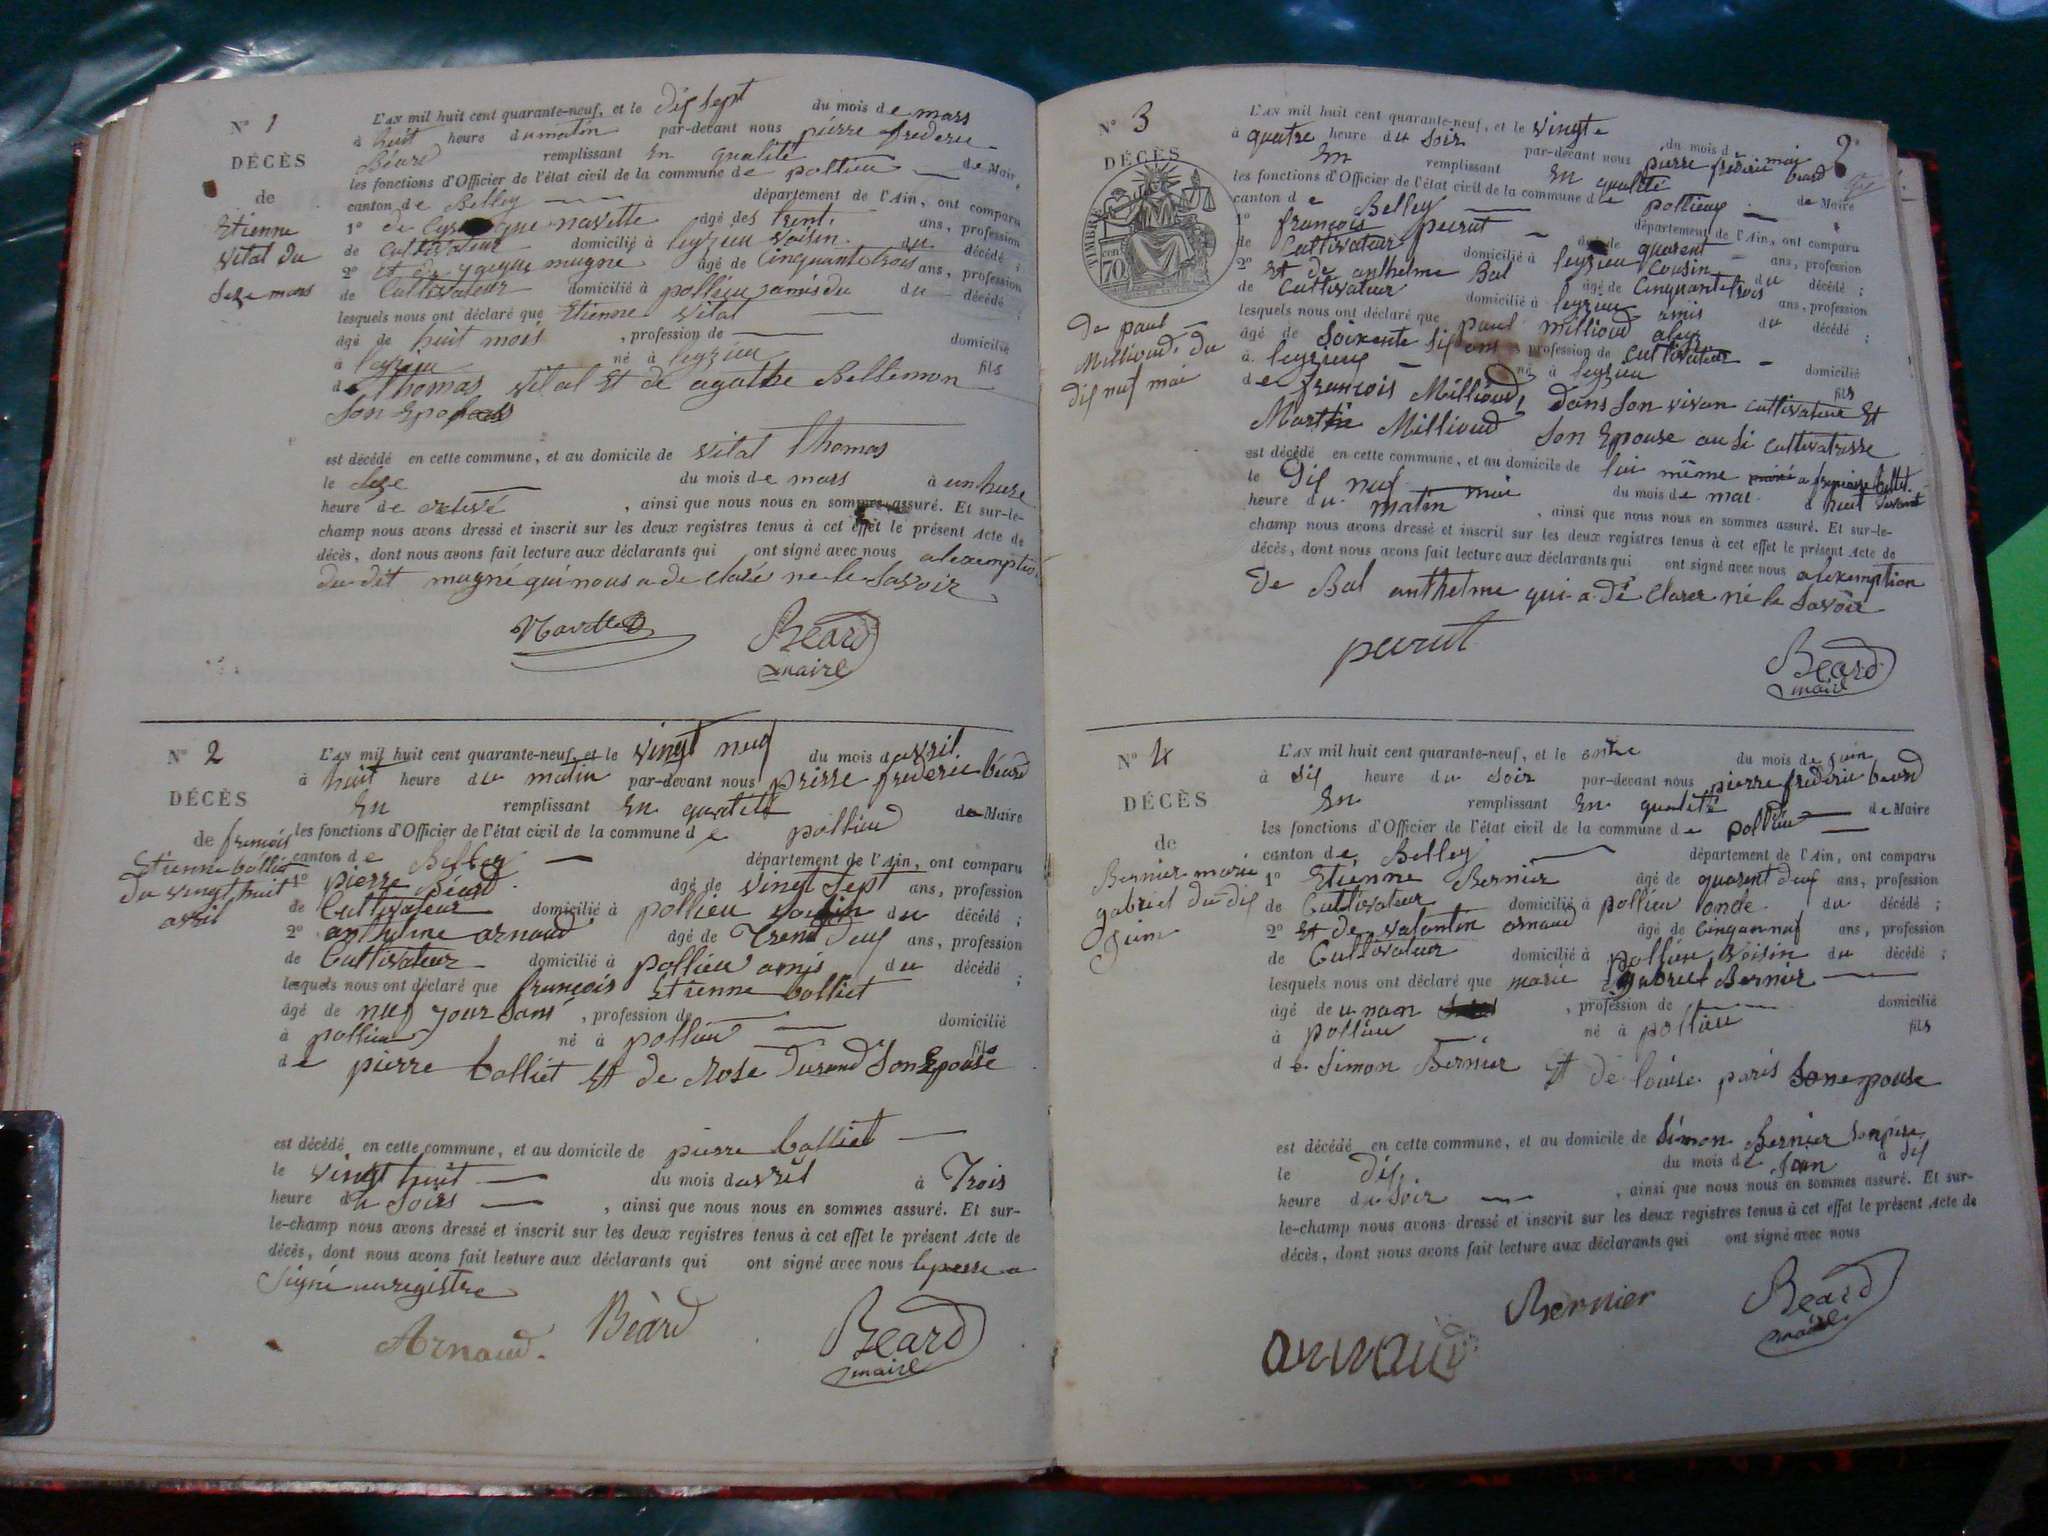 N° 1
DÉCÈS
de
Etienne
vital du
seze mars
L'AN mil huit cent quarante-neuf, et le dix sept du mois de mars
à huit heure du matin par-devant nous pierre frederic
Béard remplissant En qualité de Maire
les fonctions d'Officier de l'état civil de la commune de pollieu
canton de Belley département de l'Ain, ont comparu
1° de navette âgé des trent. ans, profession
de Cultivateur domicilié à leyzieu voisin du décédé ;
2° Et de mugne âgé de Cinquante trois ans, profession
de Cultivateur domicilié à pollieu amis du du décédé
lesquels nous ont déclaré que Etienne vital
âgé de huit mois , profession de domicilié
à né à leyzieu fils
de thomas vital Et de agathe Bellemon
Son
est décédé en cette commune, et au domicile de vital thomas
le seze du mois de mars à un hure
heure de , ainsi que nous nous en sommes assuré. Et sur-le-
champ nous avons dressé et inscrit sur les deux registres tenus à cet effet le présent Acte de
décès, dont nous avons fait lecture aux déclarants qui ont signé avec nous alexemption
du dit mugné qui nous a de claré ne le Savoir
Béard
maire
N° 2
DÉCÈS
de francois
Etienne
du vingt huit
avril
L'AN mil huit cent quarante-neuf, et le vingt neuf du mois d avril
à huit heure du matin par-devant nous prisse frederic béard
En remplissant En qualité de Maire
les fonctions d'Officier de l'état civil de la commune de pollieu
canton de Belley département de l'Ain, ont comparu
1° pierre béard âgé de vingt sept ans, profession
de Cultivateur domicilié à pollieu voisin du décédé ;
2° anthelme arnaud âgé de Trent deux ans, profession
de Cultivateur domicilié à pollieu amis du décédé ;
lesquels nous ont déclaré que françois Etienne balliet
âgé de nuf jour , profession de domicilié
à pollieu né à pollieu fils
de pierre balliet Et de Rose Durand Son Epouse
est décédé en cette commune, et au domicile de pierre balliet
le vingt huit du mois d avril à Trois
heure du Soir , ainsi que nous nous en sommes assuré. Et sur-
le-champ nous avons dressé et inscrit sur les deux registres tenus à cet effet le présent Acte de
décès, dont nous avons fait lecture aux déclarants qui ont signé avec nous
Signé
Arnaud. Béard Béard
maire
N° 3
DÉCÈS
TIMBRE
70
de paul
Millioud du
dix nuf mai
L'AN mil huit cent quarante-neuf, et le vingte du mois de mai
à quatre heure du Soir par-devant nous pierre frederic beard
En remplissant En qualité de Maire
les fonctions d'Officier de l'état civil de la commune de pollieu
canton de Belley département de l'Ain, ont comparu
1° françois peerut âgé de quarent ans, profession
de Cultivateur domicilié à leyzieu Cousin du décédé ;
2° Et de anthelme Bal âgé de Cinquante trois ans, profession
de Cultivateur domicilié à leyzieu amis du décédé ;
lesquels nous ont déclaré que paul millioud
âgé de Soixente Six ans profession de Cultivateur domicilié
à leyzieu né à leyzieu fils
de françois Millioud dans Son vivan Cultivateur Et
Martin Millioud Son Epouse au Si Cultivatrisse
est décédé en cette commune, et au domicile de lui même
le Dix nuf du mois de mai à huit
heure du matin , ainsi que nous nous en sommes assuré. Et sur-le-
champ nous avons dressé et inscrit sur les deux registres tenus à cet effet le présent Acte de
décès, dont nous avons fait lecture aux déclarants qui ont signé avec nous alexemption
de Bal anthelme qui a dé clarer né le Savoir
peerut Béard
maire
N° 4
DÉCÈS
de
Bernier marie
gabriel du dix
Juin
L'AN mil huit cent quarante-neuf, et le onze du mois de Juin
à Six heure du Soir par-devant nous pierre frederic beard
En remplissant En qualité de Maire
les fonctions d'Officier de l'état civil de la commune de pollieu
canton de Belley département de l'Ain, ont comparu
1° Etienne Bernier âgé de quarent deux ans, profession
de Cultivateur domicilié à pollieu oncle du décédé ;
2° Et de valantin arnaud âgé de ans, profession
de Cultivateur domicilié à pollieu voisin du décédé ;
lesquels nous ont déclaré que marie gabriel Bernier
âgé de un an , profession de domicilié
à pollieu né à pollieu fils
de Simon Bernier Et de louise paris Son epouse
est décédé en cette commune, et au domicile de Simon Bernier Son père
le dix du mois de Juin à dix
heure du Soir , ainsi que nous nous en sommes assuré. Et sur-
le-champ nous avons dressé et inscrit sur les deux registres tenus à cet effet le présent Acte de
décès, dont nous avons fait lecture aux déclarants qui ont signé avec nous
arnaud Bernier Béard
maire